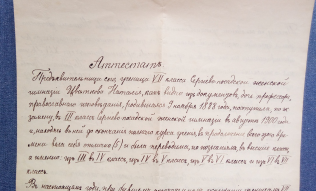 Аттестатъ.
Предъявительница сего, ученица VII класса Сергіево-посадской женской
гимназіи Цвѣткова Наталія, какъ видно изъ документовъ, дочь профессора,
православнаго исповѣданія, родившаяся 9 ноября 1888 года, поступила, по эк-
замену, въ III классъ Сергіево-посадской женской гимназіи въ августѣ 1900 года
и, находясь въ ней до окончанія полнаго курса ученія, въ продолженіи всего этого вре-
мени вела себя отлично (5) и была переводима, по экзамену, въ высшіе классы,
а именно: изъ III въ IV классъ, изъ IV въ V классъ, изъ V въ VI классъ и изъ VI въ VII
классъ.
Въ настоящемъ году, при